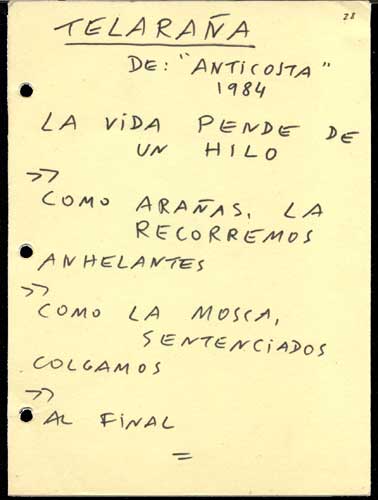 28
TELARAÑA
DE: "ANTICOSTA"
1984
LA ViDA PENDE DE
UN HILO
>>
COMO ARAÑAS, LA
RECORREMOS
ANHELANTES
>>
COMO LA MOSCA,
SENTENCIADOS
COLGAMOS
>>
AL FINAL
=